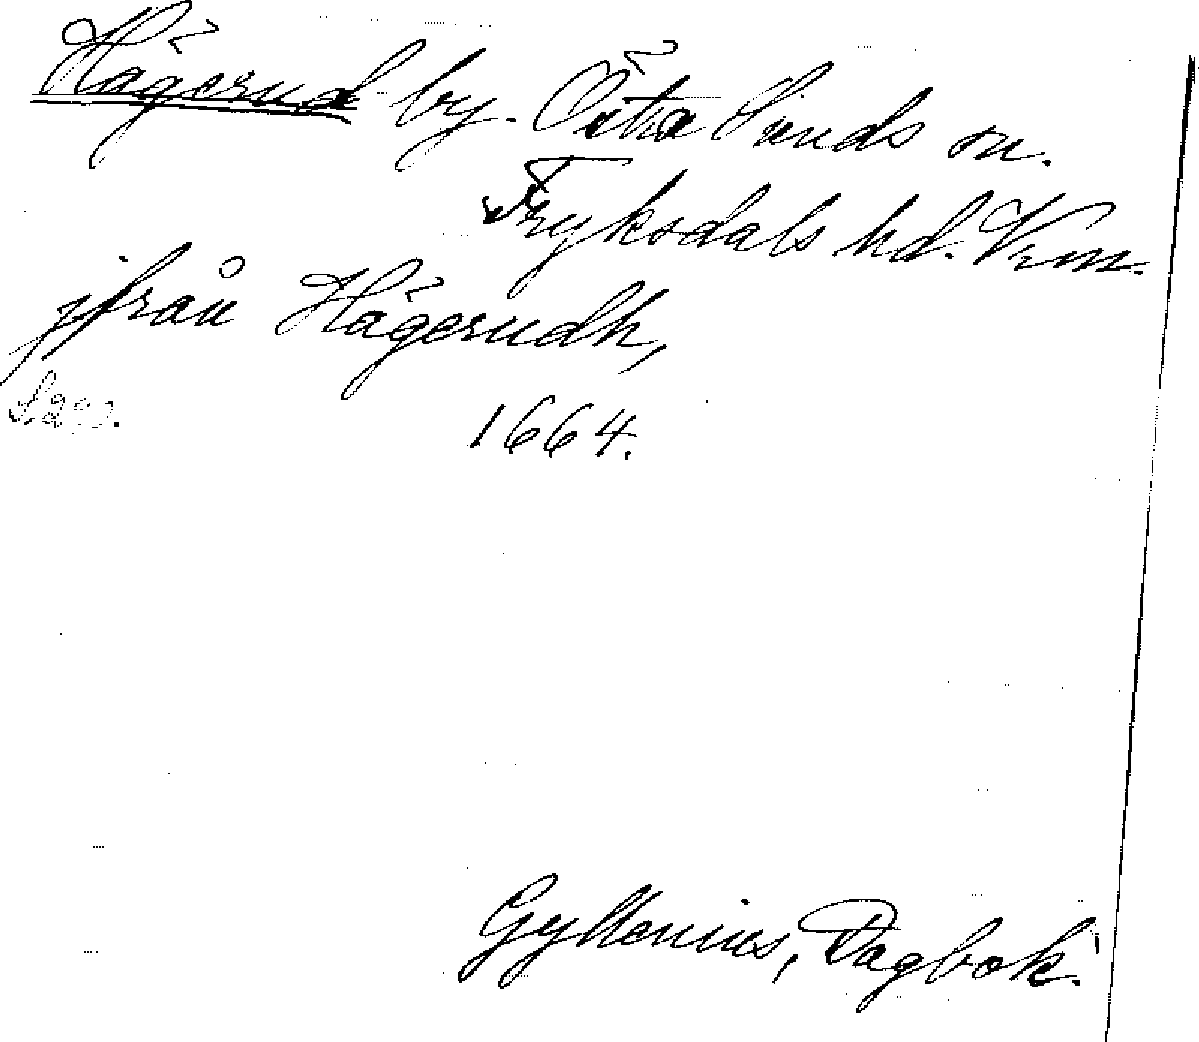 Hägerud by. Östra Sunds sn.
Fryksdals hd. Vrm.
från Hägerudh,
1664.
Gyllenius, Dagbok.